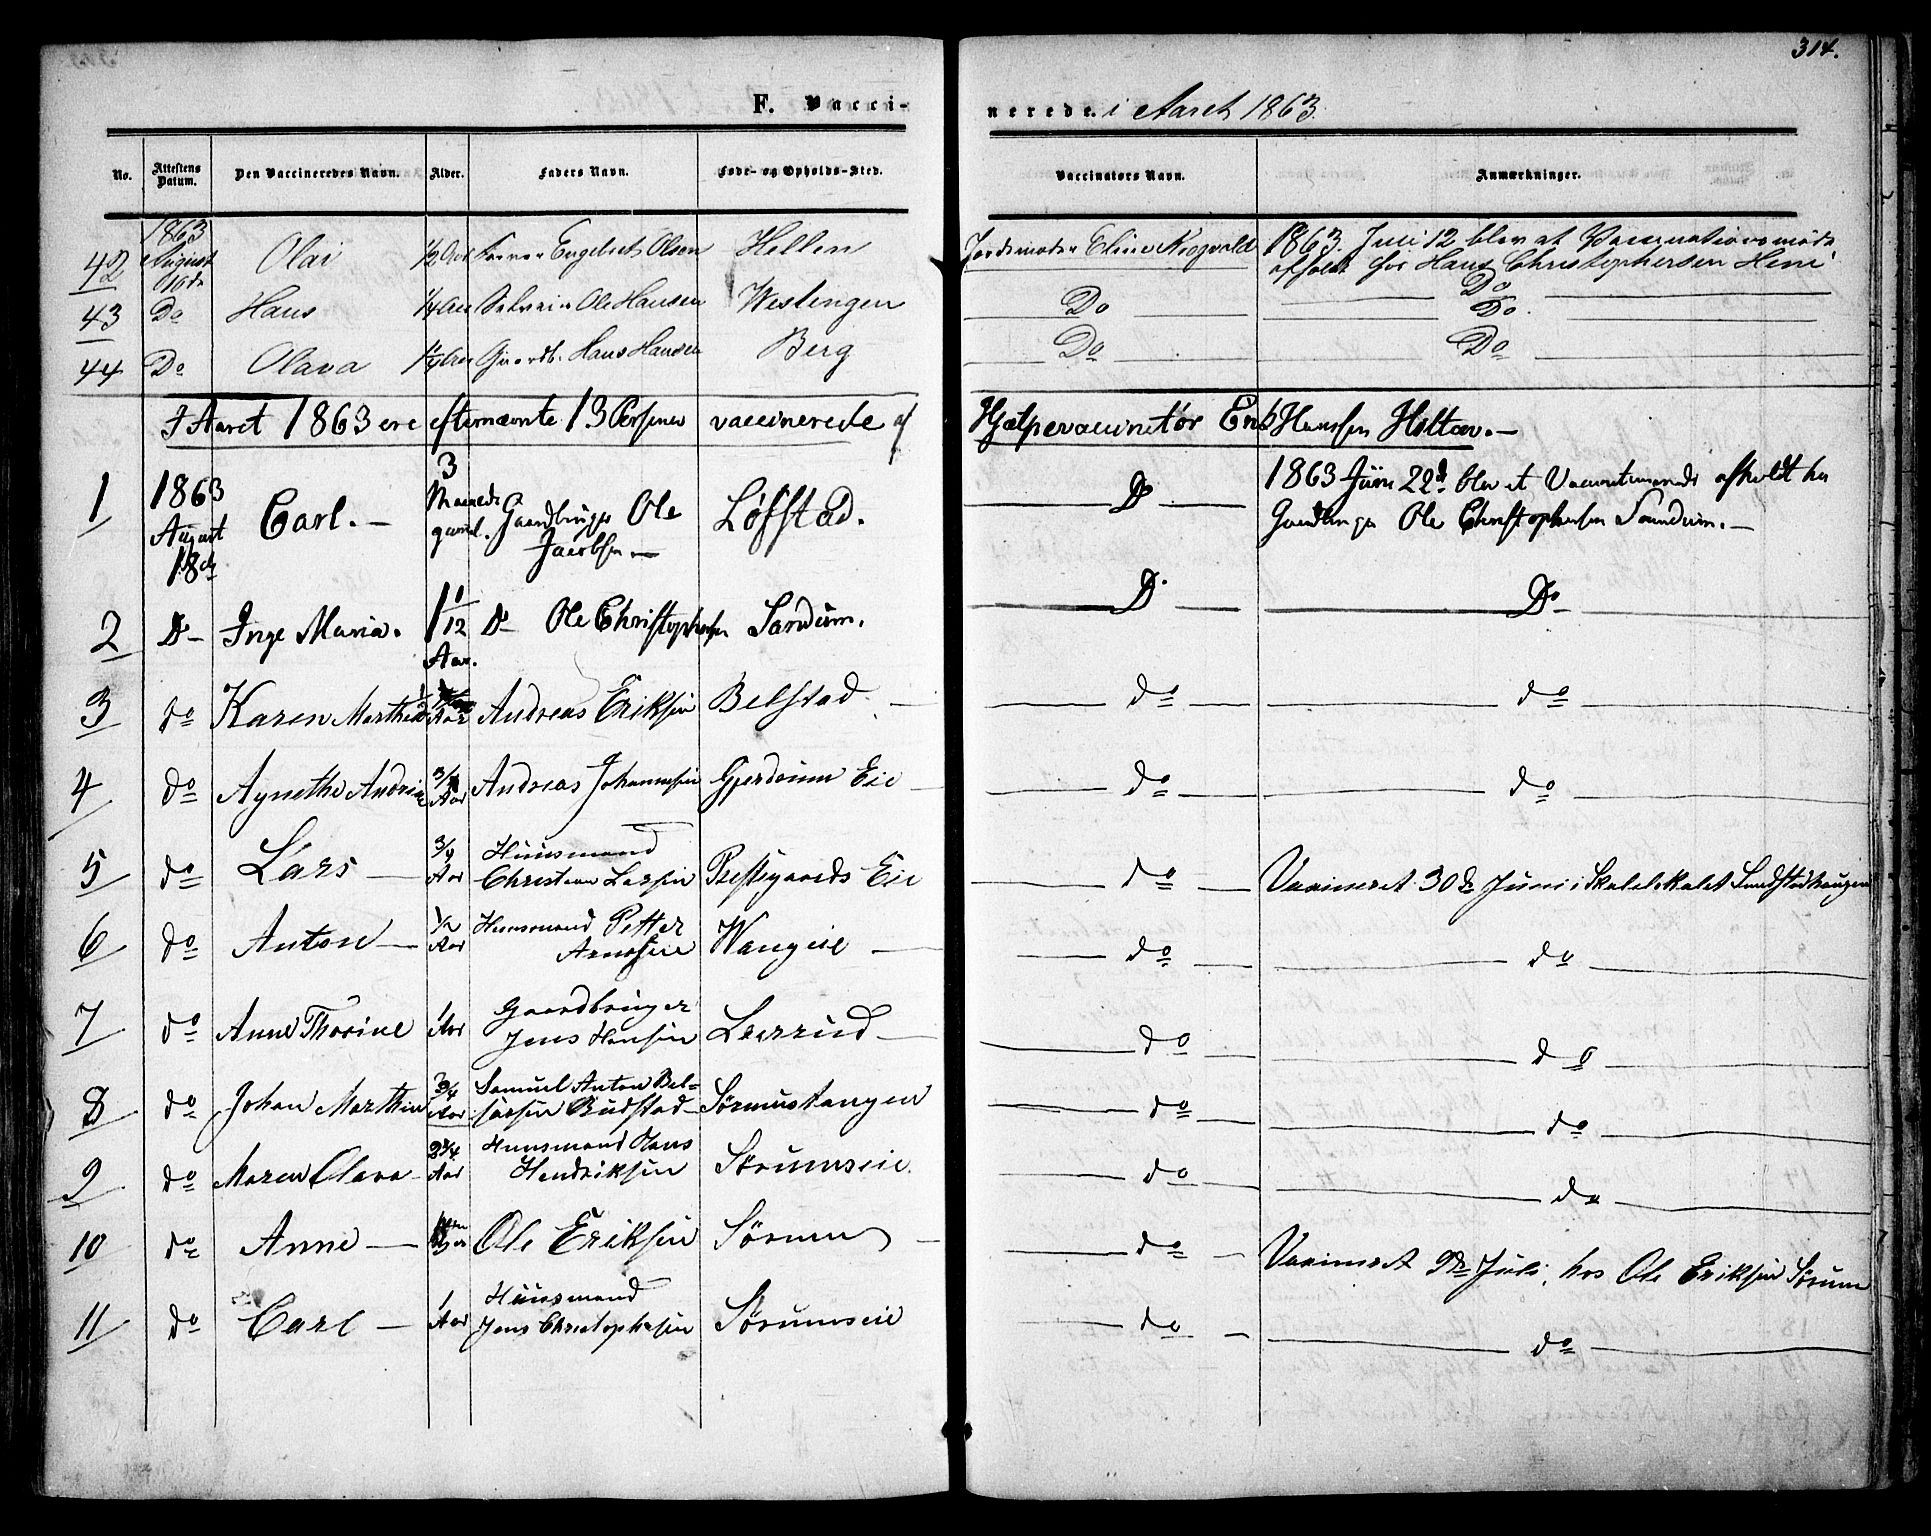 314.
F. Vaccinerede i Aaret 1863.
No. Attestens Datum. Den Vaccineredes Navn. Alder. Faders Navn. Føde- og Opholds-Sted. Vaccinators Navn. Anmærkninger.
42 1863 August Olai 1/2 Aar Engebret Olsen Hellen Jordemoder 1863. Juli 12 blev at
afholdt for Hans Christophersen
43 Do Hans 1/4 Aar Ole Hansen Westengen Do Do
Do.
44 Do Olava 1/4 Aar Gaardb. Hans Hansen Berg Do Do
I Aaret 1863 ere efternævnte 13 Personer vaccinerede af Hjælpevaccinatør Hanssen Hiltøn. —
1 1863 August 18de Carl. — 3 Maaneder gammel. Gaardbruger Ole Jacobsen — Løfstad. Do 1863 Juni 22d blev et afholdt hos
Gaardbruger Ole Christophersen Sandum. —
2 Do — Inge Maria. 1 1/12 Aar. Do — Ole Christophersen Sandum. Do Do
3 do Karen Marthea Aar Andreas Eriksen Belstad do do
4 do Agnethe Andrine 3/4 Aar Andreas Johannesen Gjerdrum Eie do do
5 do Lars — 3/4 Aar Huusmand
Christian Larsen Prestegaards Eie do Vaccineret 30d Juni i Skolelokalet
6 do Anton — 1/2 Aar Huusmand Petter
Arnesen Wangeie — do do
7 do Anne Thorine 1 Aar Gaardbruger
Jens Hansen — do do
8 do Johan Marthin 3/4 Aar Samuel Anton Bel-
Budstad — Sørmustangen do do
9 do Maren Olava — 2 3/4 Aar Huusmand Hans
Hendriksen Sørumseie. do do
10 do Anne — Ole Eriksen Sørum — do — Vaccineret 9de Juli, hos Ole Eriksen Sørum
11 do Carl — 1 Aar Huusmand
Jens Christophersen Sørumseie do — do